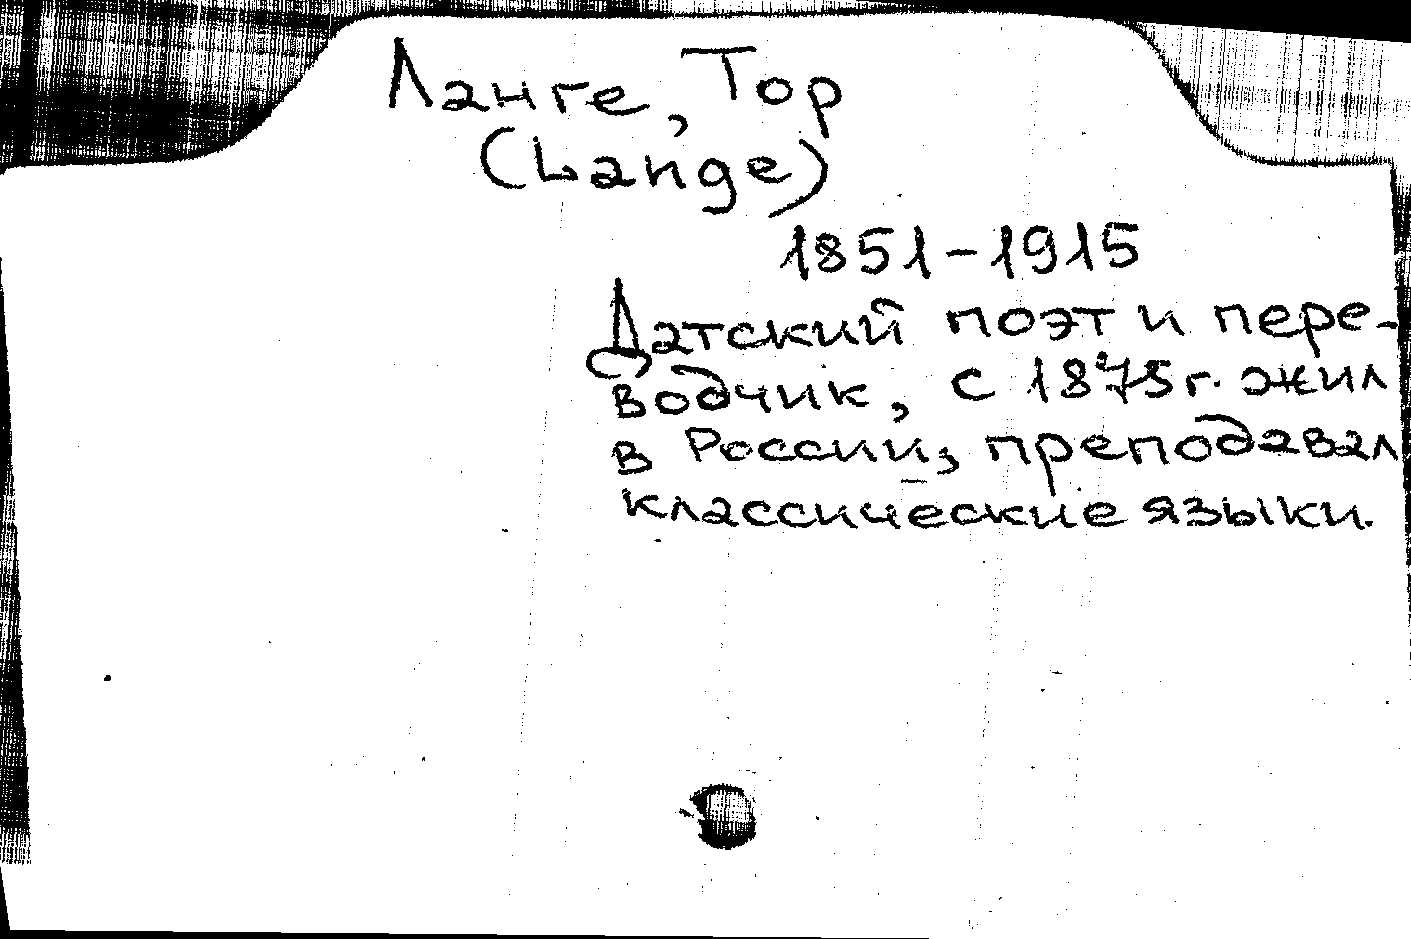 Ланге, Тор
(Lange)
1851-1915
Датский поэт и пере-
водчик, с 1875 г. жил
в России, преподавал
классические языки.